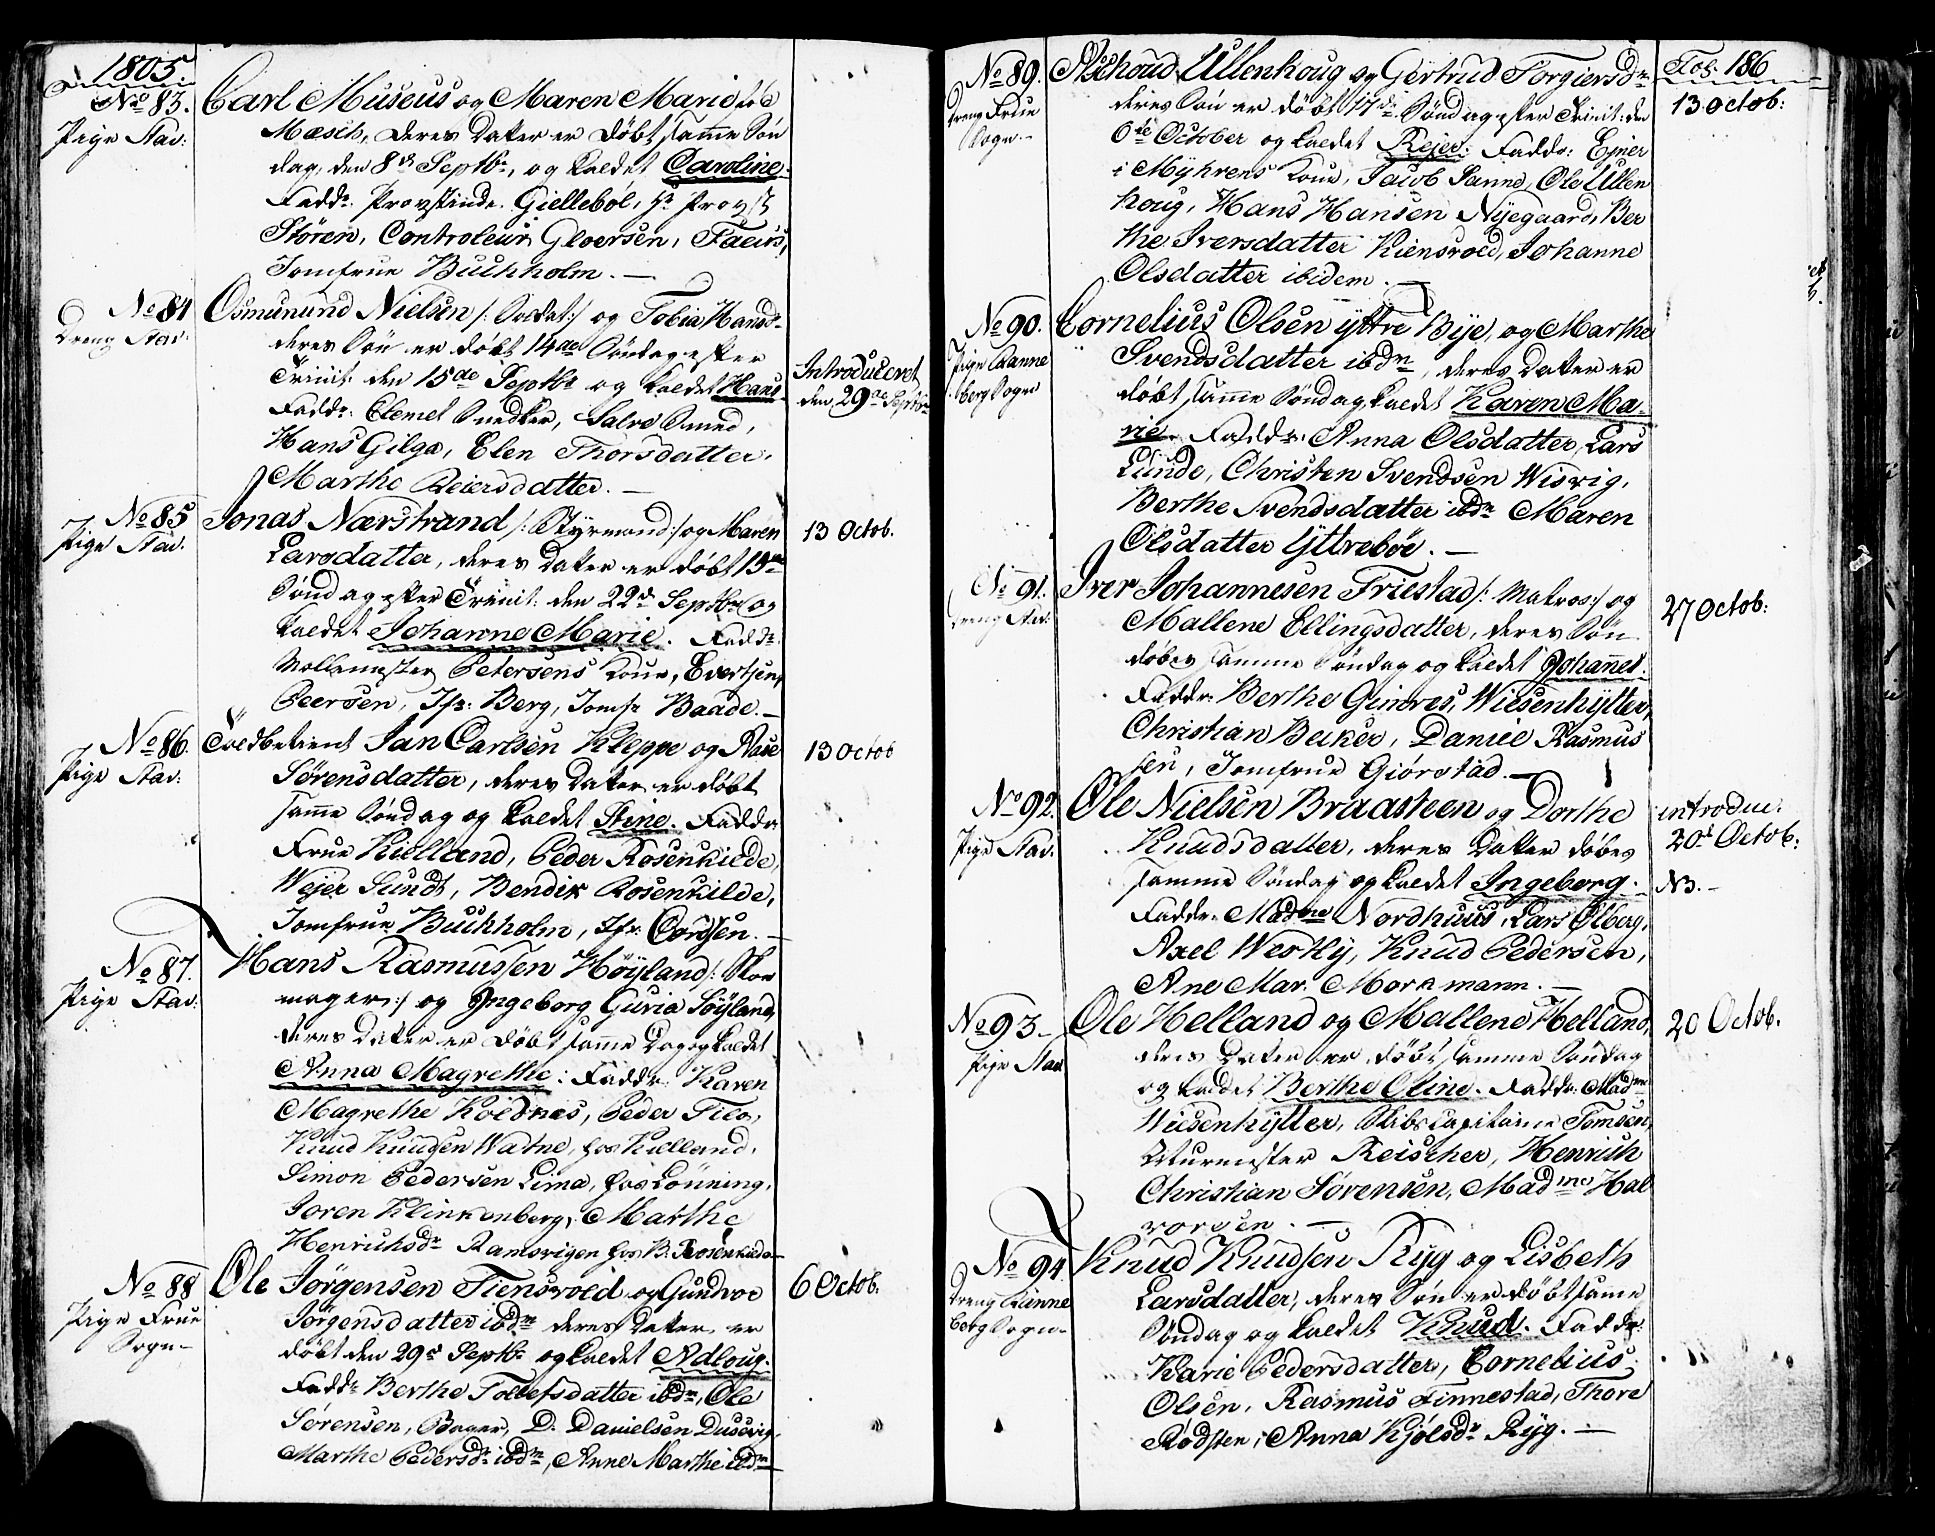 1805.
No 83.
Pige Stav:
Carl Museus og Maren Marie fød
Mæsch, deres Datter er døbt samme Søn
dag, den 8de Septbr, og kaldet Caroline.
Faddr. Provstinde Giellebøl, Hr Provst
Stören, Controleur Gloersen, Faeirs,
Jomfrue Buchholm. —
No 84
Dreng Stav:
Osmunund Nielsen /: Soldat:/ og Tobia Hansd.
deres Søn er døbt 14de Søndag efter
Trinit. den 15de Septbr og kaldet Hans.
Faddr: Clemet Snedker, Salve Smed,
Hans Gilga, Elen Thorsdatter,
Marthe Reiersdatter. —
Introduceret
den 29de Septbr
No 85
Pige Stav:
Jonas Nærstrand /: Styrmand:/ og Maren
Larsdatter, deres Datter er døbt 15de
Søndag efter Trinit: den 22de Septbr og
kaldet Johanne Marie. Faddr:
Møllemester Petersens Kone, Evertsen,
Peersen, Jfr: Berg, Jomfr Baade. —
13 Octob.
No 86.
Pige Stav:
Toldbetient Jan Carlsen Kleppe og Rase
Sørensdatter, deres Datter er døbt
samme Søndag og kaldet Stine. Faddr
Frue Kielland, Peder Rosenkilde,
Wejer Sundt, Bendix Rosenkilde,
Jomfrue Buchholm, Jfr. Cordsen. —
13 Octob
No 87.
Pige Stav:
Hans Rasmussen Höyland /: Skoe
mager:/ og Ingeborg Guria Söyland,
deres Datter er døbt samme Dag og kaldet
Anna Magrethe: Faddr. Karen
Magrethe Koldnes, Peder Tico,
Knud Knudsen Watne, hos Kielland,
Simon Pedersen Lima, hos Lönning,
Soren Klinkenberg, Marthe
Henrichsdr Ramsvigen hos B: Rosenkilde —
No 88
Pige Frue
Sogn —
Ole Jörgensen Tiensvold og Gundvor
Jörgensdatter ibdm deres Datter er
døbt den 29de Septbr og kaldet Adloug.
Faddr Berthe Tollefsdatter ibdm, Ole
Sørensen, Bager, D. Danielsen Dusevig,
Marthe Pedersdr ibdm, Anne Marthe ibdm —
6 Octob.
No 89.
Dreng Frue
Sogn —
Aschoud Ullenhoug og Gertrud Torgiersdr
deres Søn er døbt 17de Søndag efter Trinit: den
6te October og kaldet Rejer: Faddr: Ejner
i Myhrens Kone, Jacob Sanne, Ole Ullen
houg, Hans Hansen Nyegaard, Ber
the Iversdatter Kiensvold, Johanne
Olsdatter ibidem. —
Fol: 186
13 Octob:
No 90.
Pige Ranne
berg Sogn
Cornelius Olsen yttre Bye, og Marthe
Svendsdatter ibdm, deres Datter er
døbt samme Søndag, kaldet Karen Ma-
rie. Faddr: Anna Olsdatter, Lars
Lunde, Christen Svendsen Wisvig,
Berthe Svendsdatter ibdm Maren
Olsdatter Yttrebøe. —
No 91.
Dreng Stav:
Iver Johannesen Friestad /: Matros:/ og
Mallene Ellingsdatter, deres Søn
døbes samme Søndag og kaldet Johannes:
Faddr. Berthe Gimres, Wiesenhytter,
Christian Becker, Daniel Rasmus
sen, Jomfrue Giörstad. —
27 Octob:
No 92.
Pige Stav:
Ole Nielsen Braasteen og Dorthe
Knudsdatter, deres Datter døbes
samme Søndag og kaldet Ingeborg.
Faddr. Madme Nordhuus, Lars Ølberg,
Axel Westly, Knud Pedersen,
Ane Mar: Morkmann. —
introduc:
20de Octob:
NB. —
No 93 —
Pige Stav
Ole Helland og Mallene Helland,
deres Datter er døbt samme Søndag
og kaldet Berthe Oline. Faddr. Madme
Wiesenhytter, Skibscapitaine Tomsen,
Muurmester Reischer, Henrich
Christian Sörensen, Madme Hal
vorsen. —
20 Octob.
No 94.
Dreng Ranne
berg Sogn —
Knud Knudsen Ryg og Lisbeth
Larsdatter, deres Søn er døbt samme
Søndag og kaldet Knud. Faddr:
Karie Pedersdatter, Cornelius
Olsen, Rasmus Finnestad, Thore
Rodsten, Anna Kjölsdr Ryg. —